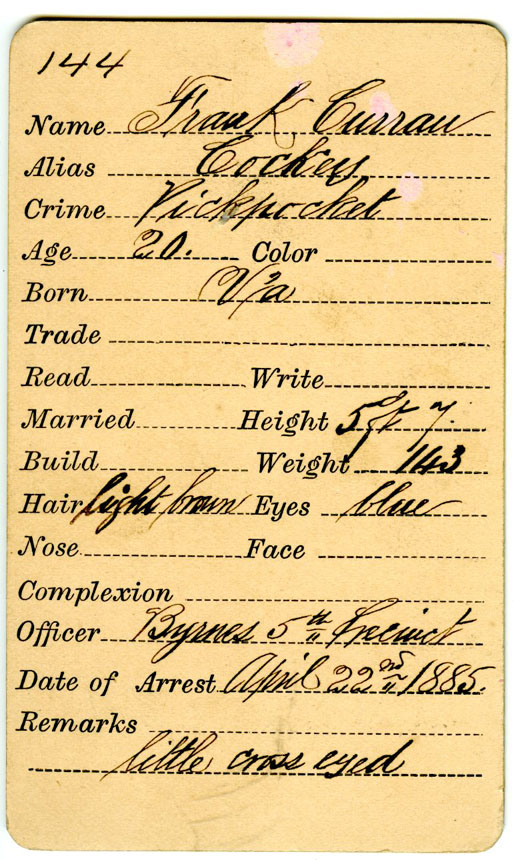 144
Name Frank Curran
Alias Cockey
Crime Pickpocket
Age 20. Color
Born Va
Trade
Read Write
Married Height 5 ft 7.
Build Weight 143
Hair light brown Eyes blue
Nose Face
Complexion
Officer Byrnes 5th Precinct
Date of Arrest April 22nd 1885.
Remarks
little cross eyed